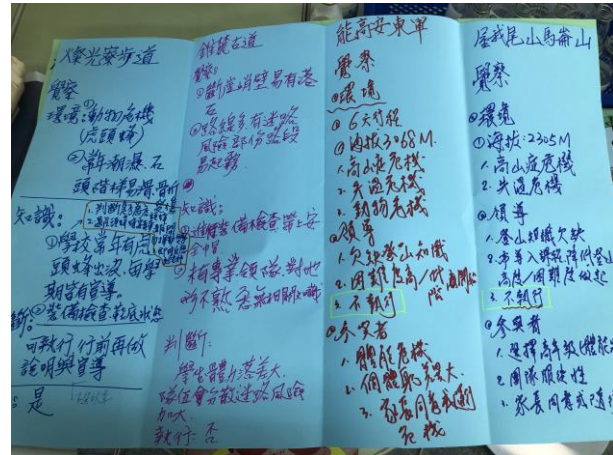 燦光寮步道
覺察
環境:①動物危機
(虎頭蜂)
②常年潮濕.石
頭階梯易滑骨折
知識:
①學校常年有虎
頭蜂出沒.毎學
期皆有宣導。
②裝備檢查:鞋底狀態
斷:
可執行.行前再做
說明與宣導
:是
錐麓古道
覺察:
①斷崖峭壁易有落
石
②路線多有迷路
風險部份路段
知識:
裝備檢查帶上安
全帽
有專業領隊對地
形不熟悉無相關知識
判斷:
學生體力落差大.
隊伍會分散迷路風險
加大.
執行:否
能高安東軍
覺察
@環境
① 6天行程
@海拔3068M.
1.高山症危機
2.失溫危機
3.動物危機
@領導
1.欠缺登山知識
2.困難度高
3.不執行
@參與者
1.體能危機
2.個體差異大.
3.家長同意或通行
危機
屋我尾山馬崙山
覺察
@環境
①海拔:2305M
1.高山症危機
2.失溫危機
@領導
1.登山知識欠缺
高度/困難度做起
3.不執行
@參與者
1.選擇高年級(體能
2.團隊服從性
3.家長同意或